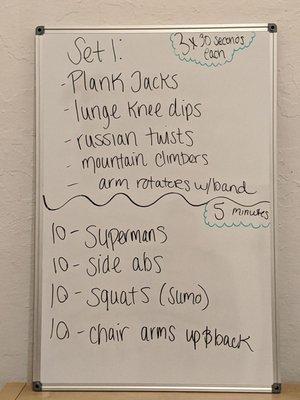 Set 1:
3 x 30 seconds
each
- Plank Jacks
- lunge knee dips
- russian twists
- mountain climbers
- arm rotates w/band
5 minutes
10 - Supermans
10 - side abs
10 - squats (sumo)
10 - chair arms up & back